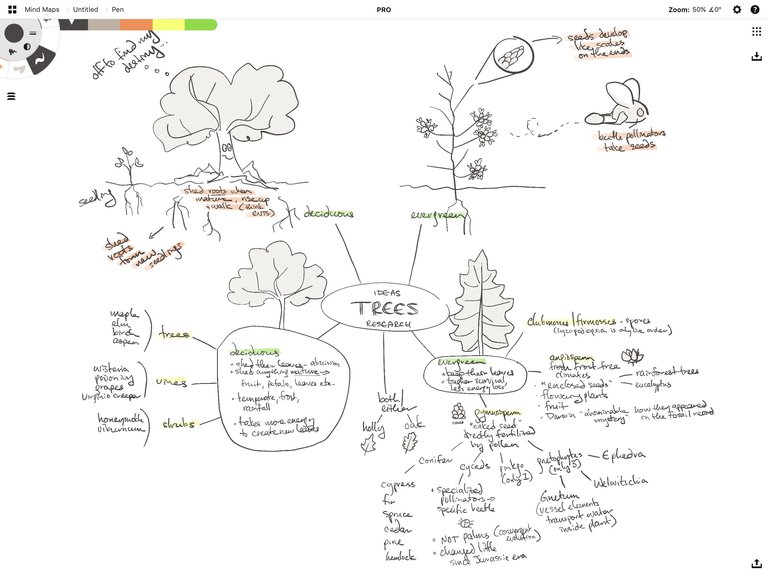 Mind Maps
Untitled
Pen
PRO
Zoom: 50% ∡0°
off to finding
destiny...
seeds develop
like scales
on the ends
beetle pollinators
take seeds
seedling
shed roots when
mature, rise up
+ walk (think
ENTS)
shed
roots
form
new
seedlings
deciduous
evergreen
IDEAS
TREES
RESEARCH
maple
elm
birch
aspen
trees
wisteria
poison ivy
grapes
Virginia creeper
vines
honeysuckle
viburnum
shrubs
deciduous
• shed their leaves - abscission
• shed anything mature →
fruit, petals, leaves etc.
• temperate, frost,
rainfall
• takes more energy
to create new leaves
both/
either
holly
oak
evergreen
• keep their leaves
• tougher survival
less energy loss
clubmosses/firmosses - spores
(lycopodiopsida is alive order)
angiosperm
from frost free
climates
• "enclosed seeds"
• flowering plants
• fruit
• Darwin - "abominable
mystery"
how they appeared
in the fossil record
rainforest trees
eucalyptus
cones
gymnosperm
"naked seed"
directly fertilized
by pollen
conifer
cypress
fir
spruce
cedar
pine
hemlock
cycads
• specialized
pollinators →
specific beetle
• NOT palms (convergent
evolution)
• changed little
since Jurassic era
ginkgo
(only 1)
gnetophytes
(only 3)
Ephedra
Welwitschia
Gnetum
(vessel elements
transport water
inside plant)